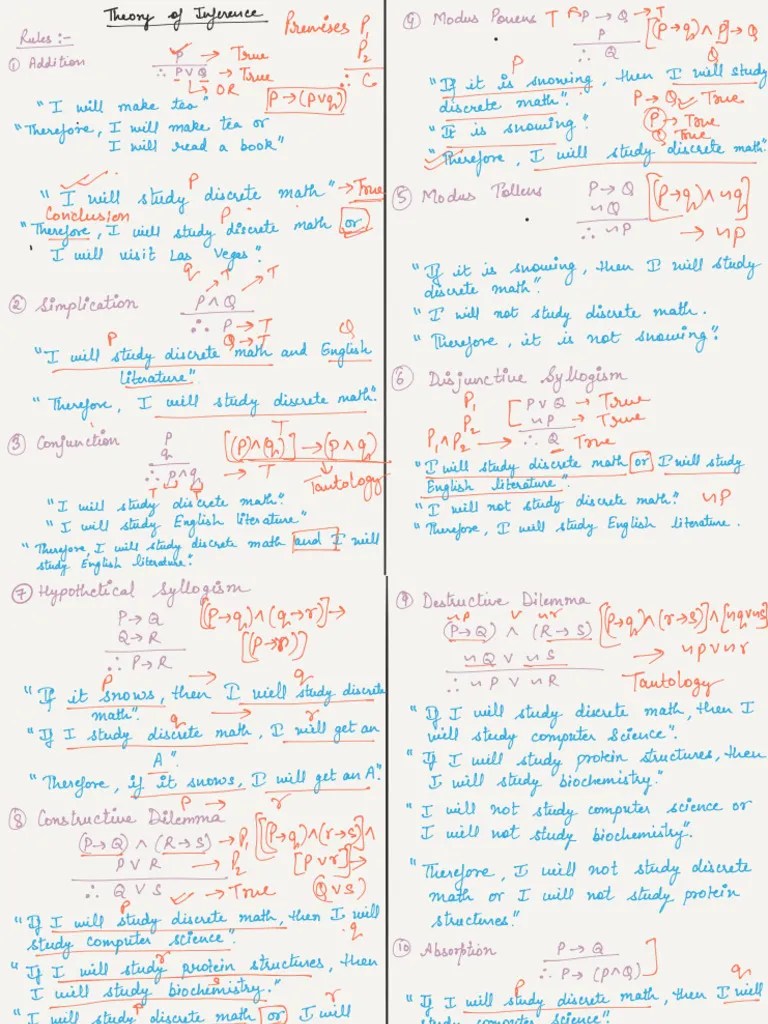 Theory of Inference
Premises P1
P2
∴ C
Rules :-
① Addition
P → True
∴ P∨Q → True
↳ OR
P→(p∨q)
"I will make tea"
"Therefore, I will make tea or
I will read a book"
P
"I will study discrete math" → True
Conclusion
P
"Therefore, I will study discrete math or
I will visit Las Vegas".
q T T
② Simplication
P∧Q
∴ P → T
Q → T
P Q
"I will study discrete math and English
literature".
"Therefore, I will study discrete math".
③ Conjunction
P
q
∴ p∧q → T
T T
T
[(P)∧(q)] → (p∧q)
Tautology
"I will study discrete math".
"I will study English literature"
"Therefore, I will study discrete math and I will
study English literature".
④ Modus Ponens
T P→Q → T
P
∴ Q
[(P→q)∧P]→Q
P Q
"If it is snowing, then I will study
discrete math".
P→Q True
P → True
Q True
"It is snowing".
"Therefore, I will study discrete math".
⑤ Modus Tollens
P→Q
~Q
∴ ~P
[(P→q)∧~q]
→ ~p
"If it is snowing, then I will study
discrete math".
"I will not study discrete math.
"Therefore, it is not snowing".
⑥ Disjunctive Syllogism
P1 P∨Q → True
P2 ~P → True
P1∧P2 → ∴ Q True
"I will study discrete math or I will study
English literature".
"I will not study discrete math." ~P
"Therefore, I will study English literature.
⑦ Hypothetical Syllogism
P→Q
Q→R
∴ P→R
[(P→q)∧(q→r)]→
[(P→r)]
P q
"If it snows, then I will study discrete
math".
q r
"If I study discrete math, I will get an
A".
"Therefore, if it snows, I will get an A".
P → r
⑧ Constructive Dilemma
(P→Q) ∧ (R→S) → P1
P∨R → P2
∴ Q∨S → True
[(P→q)∧(r→s)]∧
[P∨r]→
(Q∨S)
P
"If I will study discrete math, then I will
study computer science".
q
r
"If I will study protein structures, then
I will study biochemistry."
s
P r
"I will study discrete math or I will
⑨ Destructive Dilemma
~P ∨ ~r
(P→Q) ∧ (R→S)
~Q ∨ ~S
∴ ~P ∨ ~R
[(P→q)∧(r→s)]∧[~q∨~s]
→ ~p∨~r
Tautology
"If I will study discrete math, then I
will study computer science".
"If I will study protein structures, then
I will study biochemistry."
"I will not study computer science or
I will not study biochemistry".
"Therefore, I will not study discrete
math or I will not study protein
structures."
⑩ Absorption
P→Q
∴ P→(P∧Q)
P q
"If I will study discrete math, then I will
study computer science".